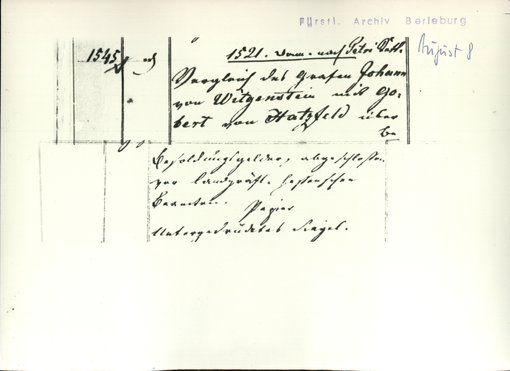 Fürstl. Archiv Berleburg
August 8
1545
1521. Donn. nach Petri Kett.
Vergleich des Grafen Johann
von Witgenstein mit Go-
bert von Hatzfeld über
Be
Besoldungsgelder, abgeschlossen
vor landgräfl. hessischen
Beamten.
Papier
Untergedrücktes Siegel.